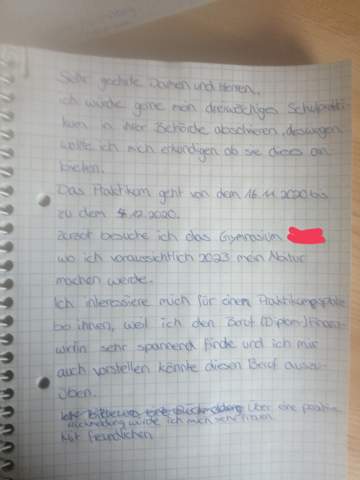 Sehr geehrte Damen und Herren,
ich würde gerne mein dreiwöchiges Schulprakti-
kum in ihrer Behörde absolvieren, deswegen
wollte ich mich erkundigen ob sie dieses an
bieten.
Das Praktikum geht von dem 16.11.2020 bis
zu dem 12.2020.
Zurzeit besuche ich das Gymnasium
wo ich voraussichtlich 2023 mein Abitur
machen werde.
Ich interessiere mich für einen Praktikumsplatz
bei ihnen, weil ich den Beruf (Diplom-)Finanz-
wirtin sehr spannend finde und ich mir
auch vorstellen könnte diesen Beruf auszu-
üben.
Über eine positive
Rückmeldung würde ich mich sehr freuen.
Mit freundlichen